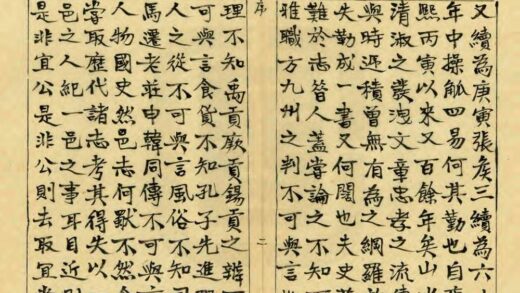 又續為庚寅張矦三續為六
年中操觚四易何其勤也自
熙丙寅以来又百餘年矣山
清淑之叢洩文章忠孝之流
與時逓積曽無有為之網羅
失勒成一書又何闊也夫史
難於志昔人盖嘗論之不知
雅職方九州之判不可與言
序
二
理不知禹貢厥貢錫貢之辨
可與言食貨不知孔子先進
人之從不可與言風俗不知司
馬遷老莊申韓同傳不可與言
人物國史然邑志何獨不然
當取歷代諸志考其得失以
邑之人紀一邑之事耳目近
是非宜公是非公則去取宜